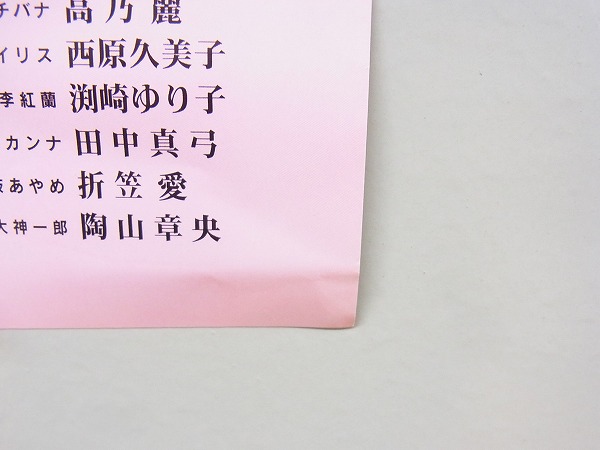 チバナ 高乃麗
イリス 西原久美子
李紅蘭 渕崎ゆり子
カンナ 田中真弓
あやめ 折笠愛
大神一郎 陶山章央